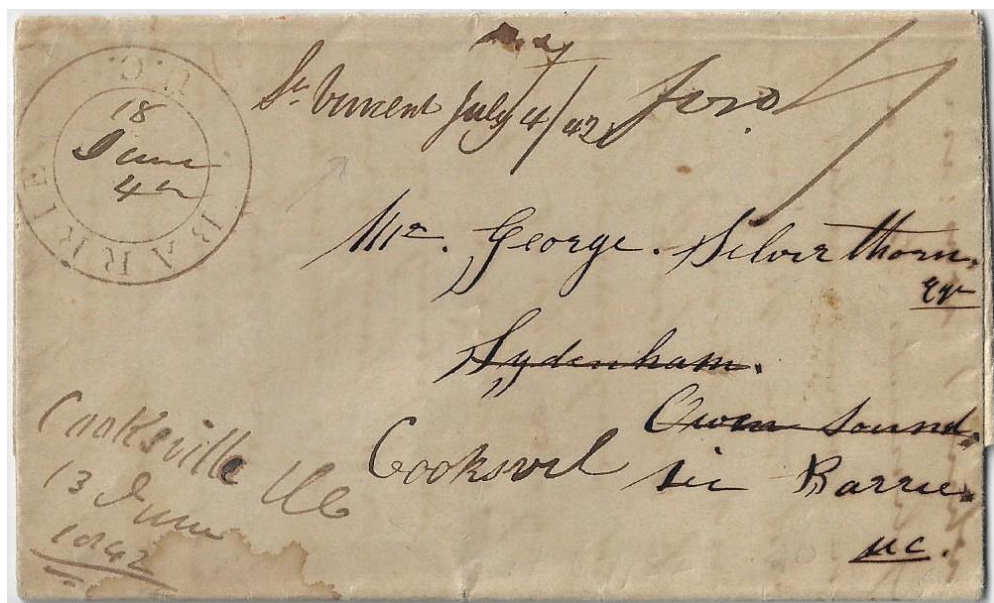 U.C.
BARRIE
18
June
42
St Vincent July 4/42
Mr. George. Silverthorn.
Eqr
Sydenham.
Owen Sound.
Cooksvil
Barrie.
UC.
Cooksville UC
13 June
1842